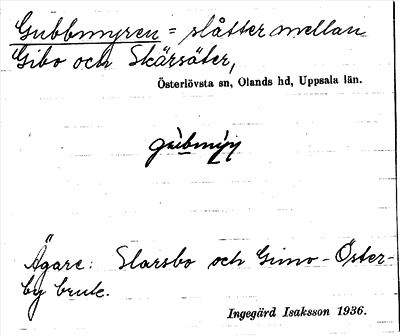 Gubbmyren = slåtter mellan
Gibo och Skärsäter,
Österlövsta sn, Olands hd, Uppsala län.
Ägare: Slarsbo och Gimo-Öster-
by bruk.
Ingegärd Isaksson 1936.